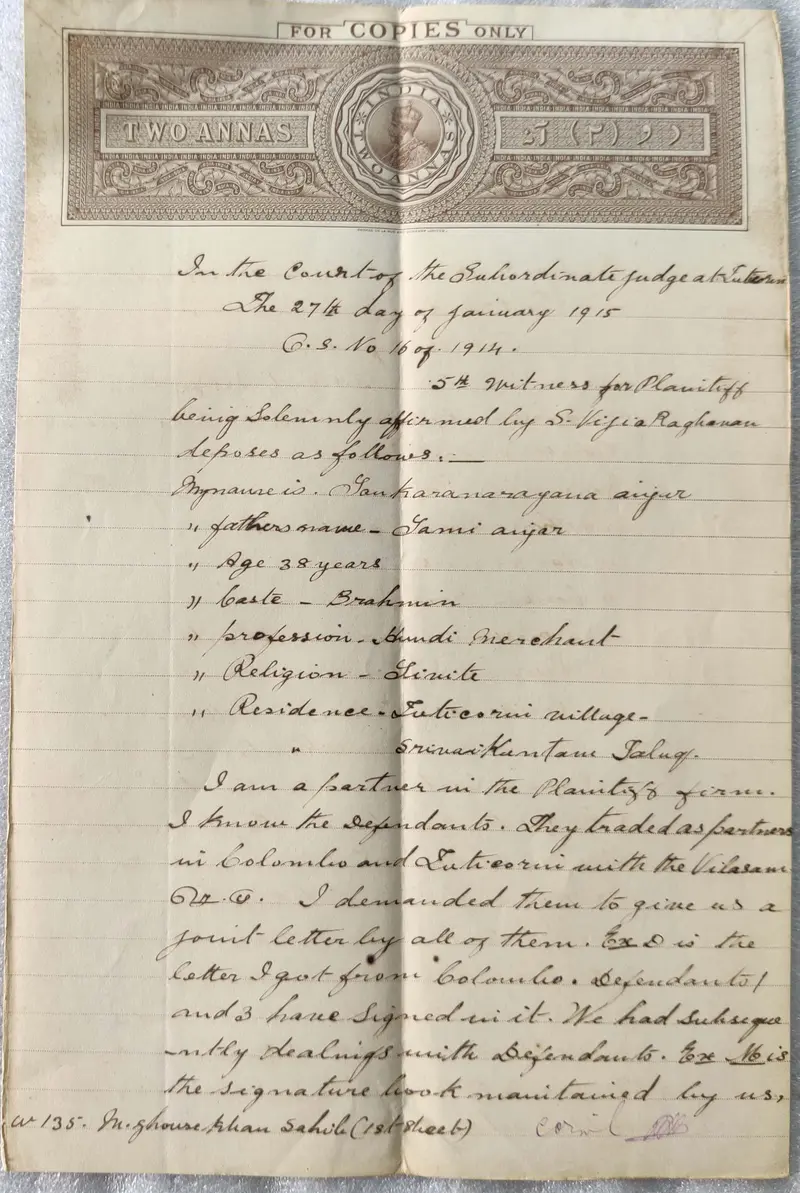 FOR COPIES ONLY
INDIA
TWO ANNAS
TWO ANNAS
In the Court of the Subordinate Judge at Tuticorin
The 27th day of January 1915
O. S. No 16 of 1914.
5th Witness for Plaintiff
being Solemnly affirmed by S. Vijia Raghavan
deposes as follows:—
My name is. Sankaranarayana aiyer
" fathers name - Sami aiyar
" Age 38 years
" Caste - Brahmin
" profession - Hundi Merchant
" Religion - Sivite
" Residence - Tuticorin village -
" Srivaikuntam Taluq.
I am a partner in the Plaintiff firm.
I know the Defendants. They traded as partners
in Colombo and Tuticorin with the Vilasam
I demanded them to give us a
joint letter by all of them. Ex D is the
letter I got from Colombo. Defendants 1
and 3 have signed in it. We had subseque
-ntly dealings with Defendants. Ex M is
the signature book maintained by us,
W 135. M. Ghouse Khan Sahib (1st Sheet)